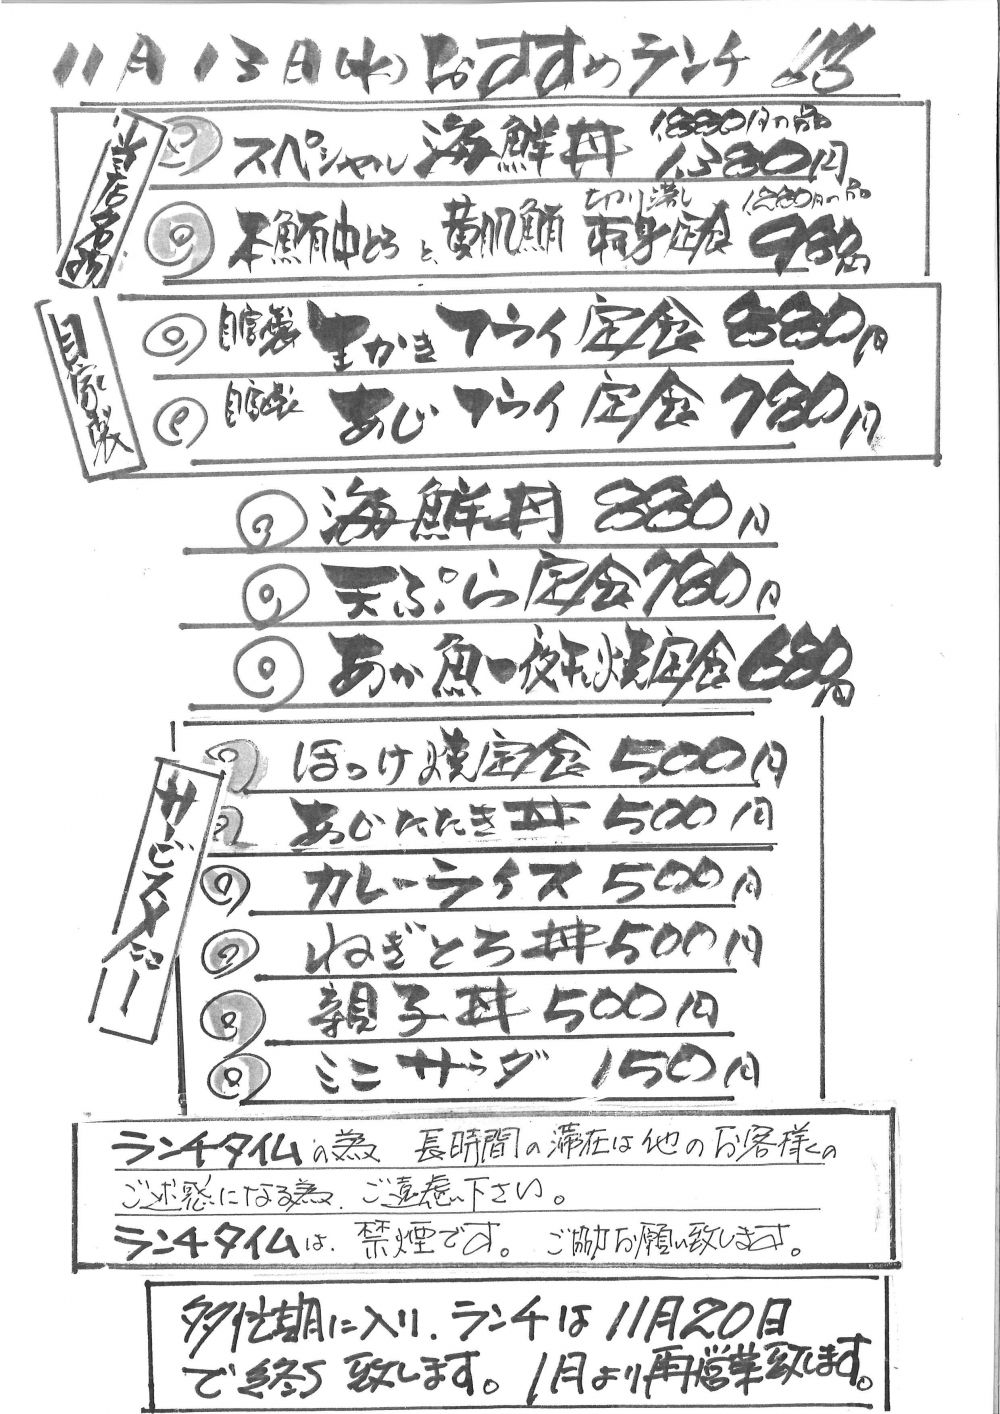 11月13日(水)おすすめランチ!!
当店名物
スペシャル海鮮丼 1880円の品 1380円
本鮪中とろと黄肌鮪 切り落し 刺身定食 1280円の品 980円
自家製
自家製 生かきフライ定食 880円
自家製 あじフライ定食 780円
海鮮丼 880円
天ぷら定食 780円
あか魚一夜干し焼定食 680円
サービスメニュー
ほっけ焼定食 500円
あじたたき丼 500円
カレーライス 500円
ねぎとろ丼 500円
親子丼 500円
ミニサラダ 150円
ランチタイムの為 長時間の滞在は他のお客様への
ご迷惑になる為、ご遠慮い下さい。
ランチタイムは、禁煙です。 ご協力お願い致します。
多忙期に入り、ランチは11月20日
で終り致します。1月より再営業致します。